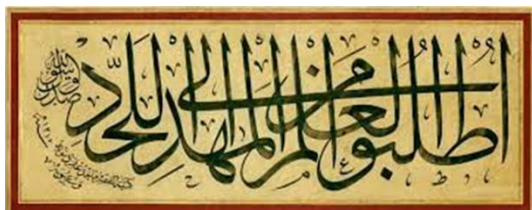 اطلبوا العلم من المهد الى اللحد
صدق رسول الله